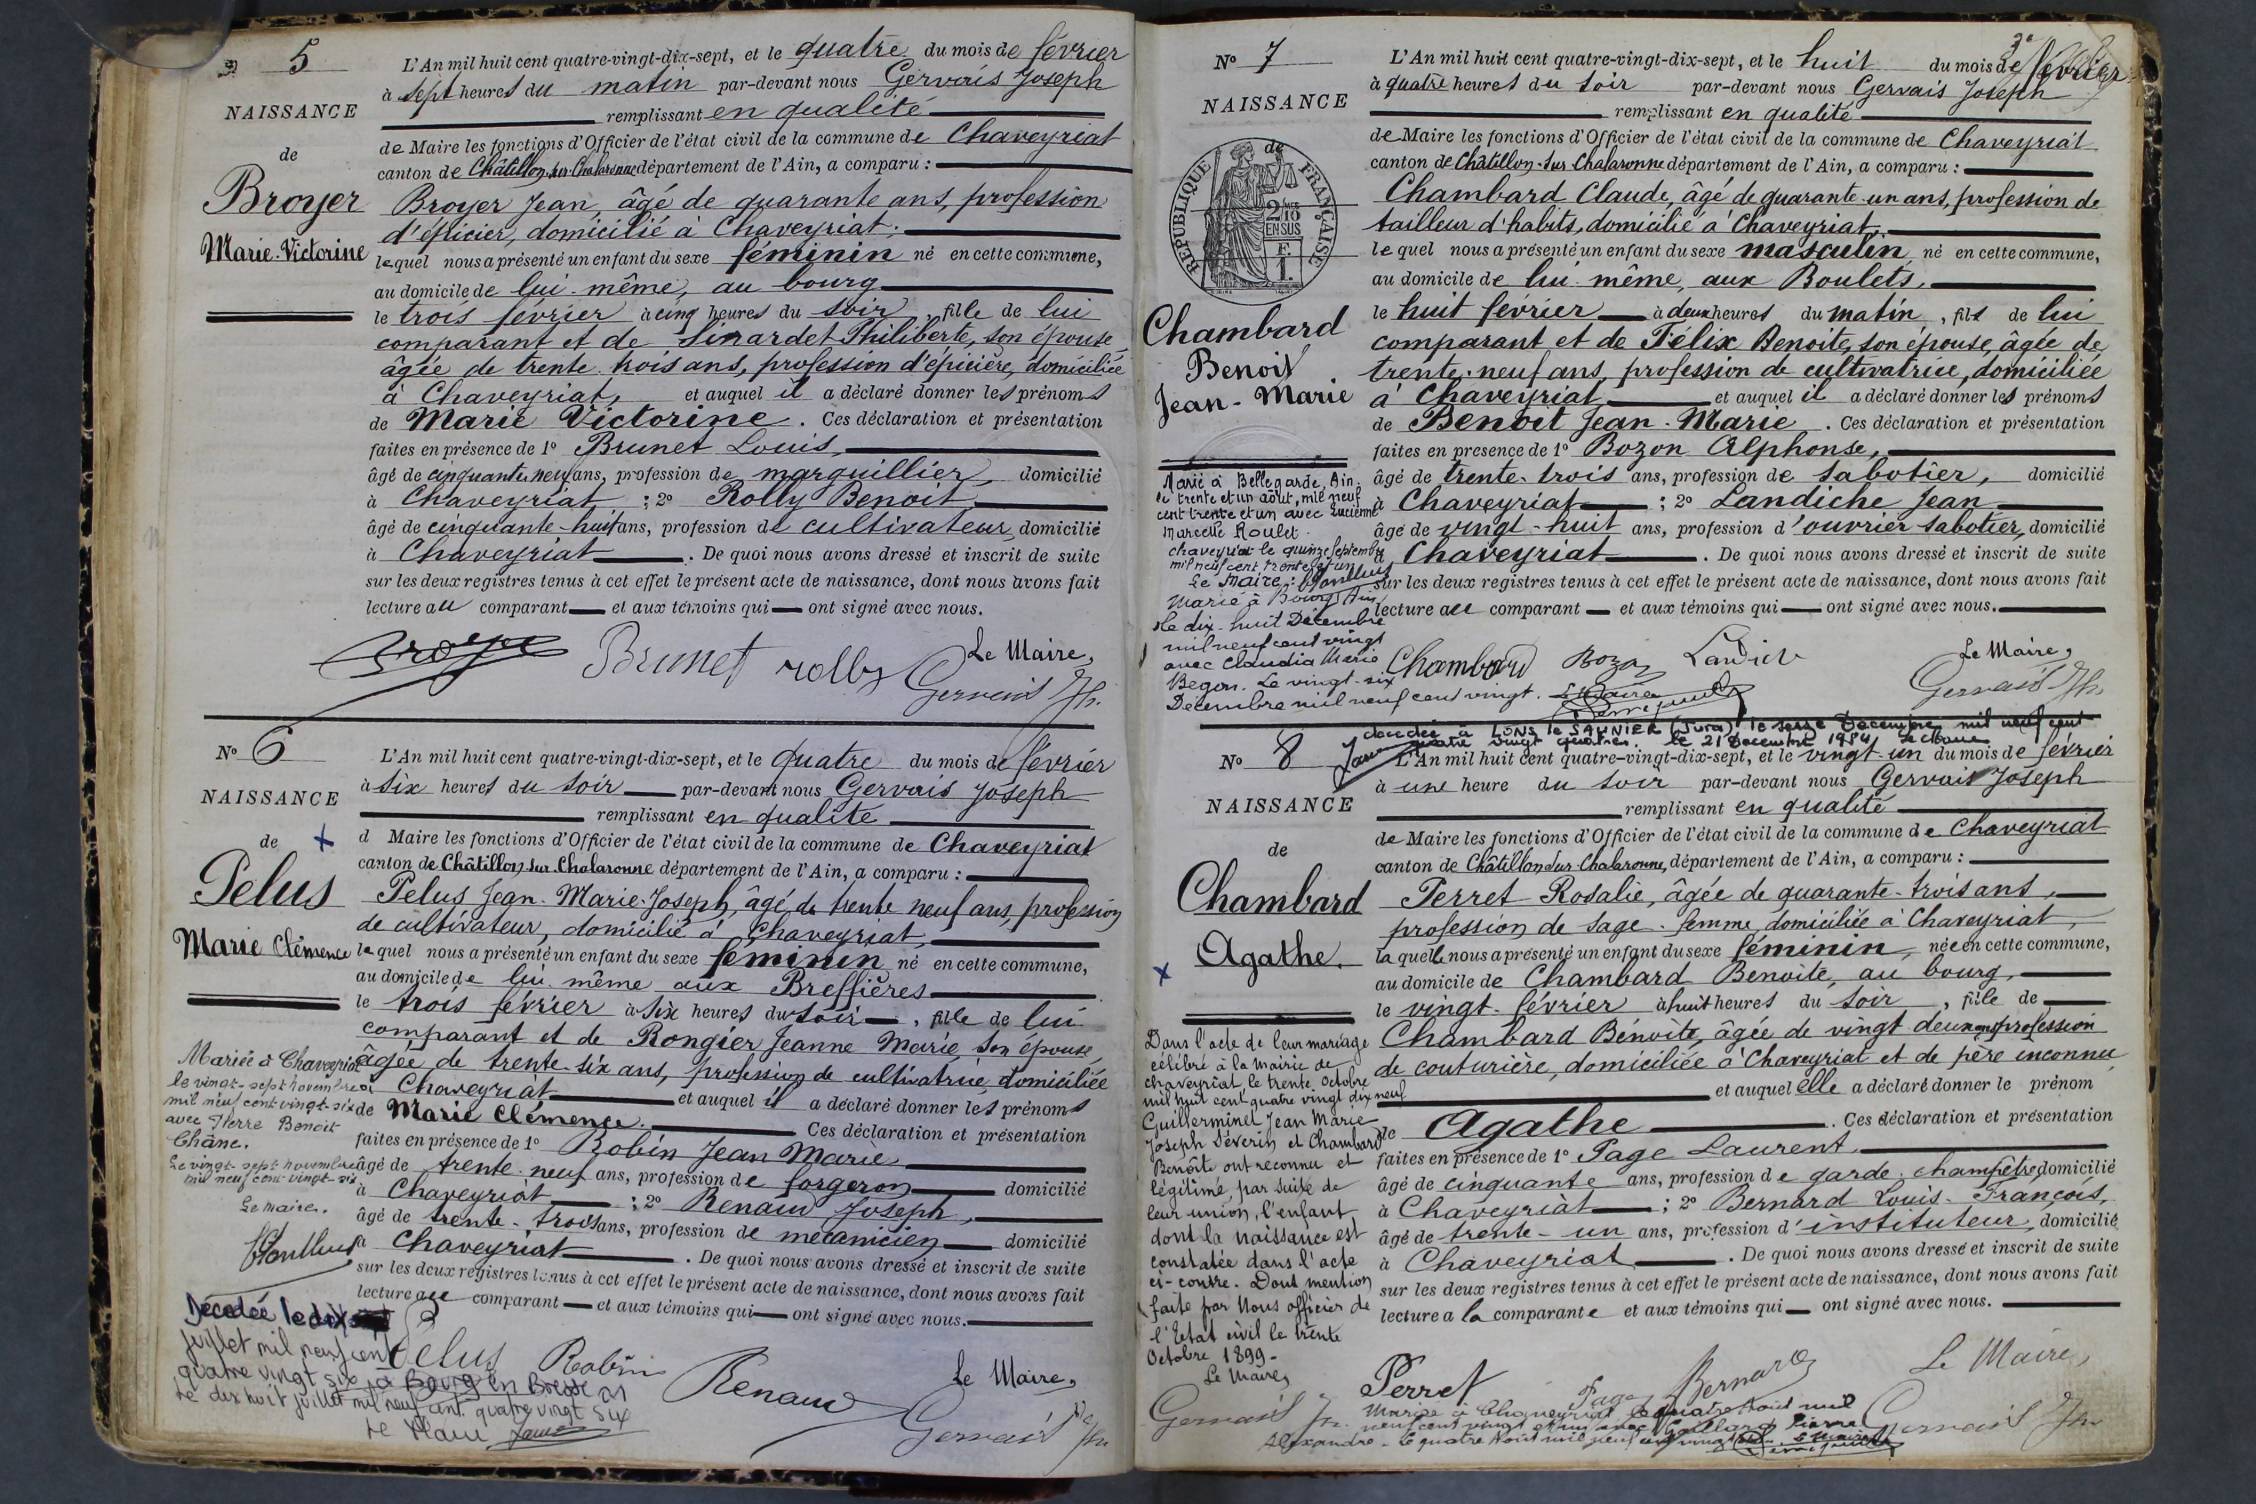 5
NAISSANCE
de
Broyer
Marie-Victorine
L'An mil huit cent quatre-vingt-dix-sept, et le quatre du mois de février
à sept heures du matin par-devant nous Gervais Joseph
remplissant en qualité
de Maire les fonctions d'Officier de l'état civil de la commune de Chaveyriat
canton de Châtillon-sur-Chalaronne département de l'Ain, a comparu :
Broyer Jean, âgé de quarante ans, profession
d'épicier, domicilié à Chaveyriat.
lequel nous a présenté un enfant du sexe féminin né en cette commune,
au domicile de lui-même, au bourg
le trois février à cinq heures du soir, fille de lui
comparant et de Sinardet Philiberte, son épouse
âgée de trente-trois ans, profession d'épicière, domiciliée
à Chaveyriat, et auquel il a déclaré donner les prénoms
de Marie Victorine. Ces déclaration et présentation
faites en présence de 1º Brunet Louis,
âgé de cinquante-neuf ans, profession de marguillier, domicilié
à Chaveyriat ; 2º Rolly Benoit
âgé de cinquante-huit ans, profession de cultivateur, domicilié
à Chaveyriat. De quoi nous avons dressé et inscrit de suite
sur les deux registres tenus à cet effet le présent acte de naissance, dont nous avons fait
lecture au comparant et aux témoins qui ont signé avec nous.
Le Maire,
Broyer Brunet rolly Gervais Jh.
Nº 6
NAISSANCE
de
Pelus
Marie Clémence
L'An mil huit cent quatre-vingt-dix-sept, et le quatre du mois de février
à six heures du soir par-devant nous Gervais Joseph
remplissant en qualité
d Maire les fonctions d'Officier de l'état civil de la commune de Chaveyriat
canton de Châtillon-sur-Chalaronne département de l'Ain, a comparu :
Pelus Jean-Marie-Joseph, âgé de trente neuf ans, profession
de cultivateur, domicilié à Chaveyriat,
lequel nous a présenté un enfant du sexe féminin né en cette commune,
au domicile de lui-même aux Breffières
le trois février à six heures du soir, fille de lui
comparant et de Rongier Jeanne Marie, son épouse,
âgée de trente-six ans, profession de cultivatrice, domiciliée
à Chaveyriat et auquel il a déclaré donner les prénoms
de Marie Clémence. Ces déclaration et présentation
faites en présence de 1º Robin Jean Marie
âgé de trente-neuf ans, profession de forgeron domicilié
à Chaveyriat ; 2º Renaud Joseph,
âgé de trente-trois ans, profession de mécanicien domicilié
à Chaveyriat. De quoi nous avons dressé et inscrit de suite
sur les deux registres tenus à cet effet le présent acte de naissance, dont nous avons fait
lecture au comparant et aux témoins qui ont signé avec nous.
Mariée à Chaveyriat
le vingt-sept novembre
mil neuf cent vingt-six
avec Pierre Benoit
Châne.
Le vingt-sept novembre
mil neuf cent vingt-six
Le maire.
Décédée le dix
juillet mil neuf cent
quatre vingt six à Bourg en Bresse 01
Le dix huit juillet mil neuf cent quatre vingt six
Le Maire
Le Maire,
Pelus Robin Renaud Gervais Jh.
Nº 7
NAISSANCE
de
RÉPUBLIQUE FRANÇAISE
2/10
EN SUS
F.
1.
Chambard
Benoit
Jean-Marie
L'An mil huit cent quatre-vingt-dix-sept, et le huit du mois de février
à quatre heures du soir par-devant nous Gervais Joseph
remplissant en qualité
de Maire les fonctions d'Officier de l'état civil de la commune de Chaveyriat
canton de Châtillon-sur-Chalaronne département de l'Ain, a comparu :
Chambard Claude, âgé de quarante-un ans, profession de
tailleur d'habits, domicilié à Chaveyriat,
lequel nous a présenté un enfant du sexe masculin né en cette commune,
au domicile de lui-même, aux Boulets,
le huit février à deux heures du matin, fils de lui
comparant et de Félix Benoite, son épouse, âgée de
trente-neuf ans, profession de cultivatrice, domiciliée
à Chaveyriat et auquel il a déclaré donner les prénoms
de Benoit Jean-Marie. Ces déclaration et présentation
faites en présence de 1º Bozon Alphonse,
âgé de trente-trois ans, profession de sabotier, domicilié
à Chaveyriat ; 2º Landiche Jean
âgé de vingt-huit ans, profession d'ouvrier sabotier, domicilié
à Chaveyriat. De quoi nous avons dressé et inscrit de suite
sur les deux registres tenus à cet effet le présent acte de naissance, dont nous avons fait
lecture au comparant et aux témoins qui ont signé avec nous.
Marié à Bellegarde, Ain.
le trente et un août, mil neuf
cent trente et un avec Lucienne
Marcelle Roulet.
chaveyriat le quinze septembre
mil neuf cent trente et un
Le Maire :
Marié à Bourg Ain
le dix-huit Décembre
mil neuf cent vingt
avec Claudia Marie
Begon. Le vingt-six
Décembre mil neuf cent vingt. Le Maire
Le Maire,
Chambard Bozon Landiche Gervais Jh.
Nº 8
NAISSANCE
de
Chambard
Agathe.
décédée à LONS le SAUNIER (Jura) le seize Décembre mil neuf cent
quatre vingt quatre. le 21 Décembre 1984
L'An mil huit cent quatre-vingt-dix-sept, et le vingt-un du mois de février
à une heure du soir par-devant nous Gervais Joseph
remplissant en qualité
de Maire les fonctions d'Officier de l'état civil de la commune de Chaveyriat
canton de Châtillon sur Chalaronne, département de l'Ain, a comparu :
Perret Rosalie, âgée de quarante-trois ans,
profession de sage-femme, domiciliée à Chaveyriat,
laquelle nous a présenté un enfant du sexe féminin, née en cette commune,
au domicile de Chambard Benoite, au bourg,
le vingt février à huit heures du soir, fille de
Chambard Benoite, âgée de vingt-deux ans, profession
de couturière, domiciliée à Chaveyriat et de père inconnu
et auquel elle a déclaré donner le prénom
de Agathe. Ces déclaration et présentation
faites en présence de 1º Page Laurent,
âgé de cinquante ans, profession de garde-champêtre, domicilié
à Chaveyriat ; 2º Bernard Louis-François,
âgé de trente-un ans, profession d'instituteur, domicilié
à Chaveyriat. De quoi nous avons dressé et inscrit de suite
sur les deux registres tenus à cet effet le présent acte de naissance, dont nous avons fait
lecture a la comparante et aux témoins qui ont signé avec nous.
Dans l'acte de leur mariage
célébré à la Mairie de
chaveyriat le trente octobre
mil huit cent quatre vingt dix neuf
Guillerminet Jean Marie
Joseph Séverin et Chambard
Benoîte ont reconnu et
légitimé, par suite de
leur union, l'enfant
dont la naissance est
constatée dans l'acte
ci-contre. Dont mention
faite par Nous officier de
l'Etat civil le trente
Octobre 1899-
Le Maire,
Gervais Jh.
Le Maire,
Perret Page Bernard Gervais Jh
Mariée à Chaveyriat le quatre Août mil
neuf cent vingt et un avec Gaillard Pierre
Alexandre - Le quatre Août mil neuf cent vingt et un. Le Maire